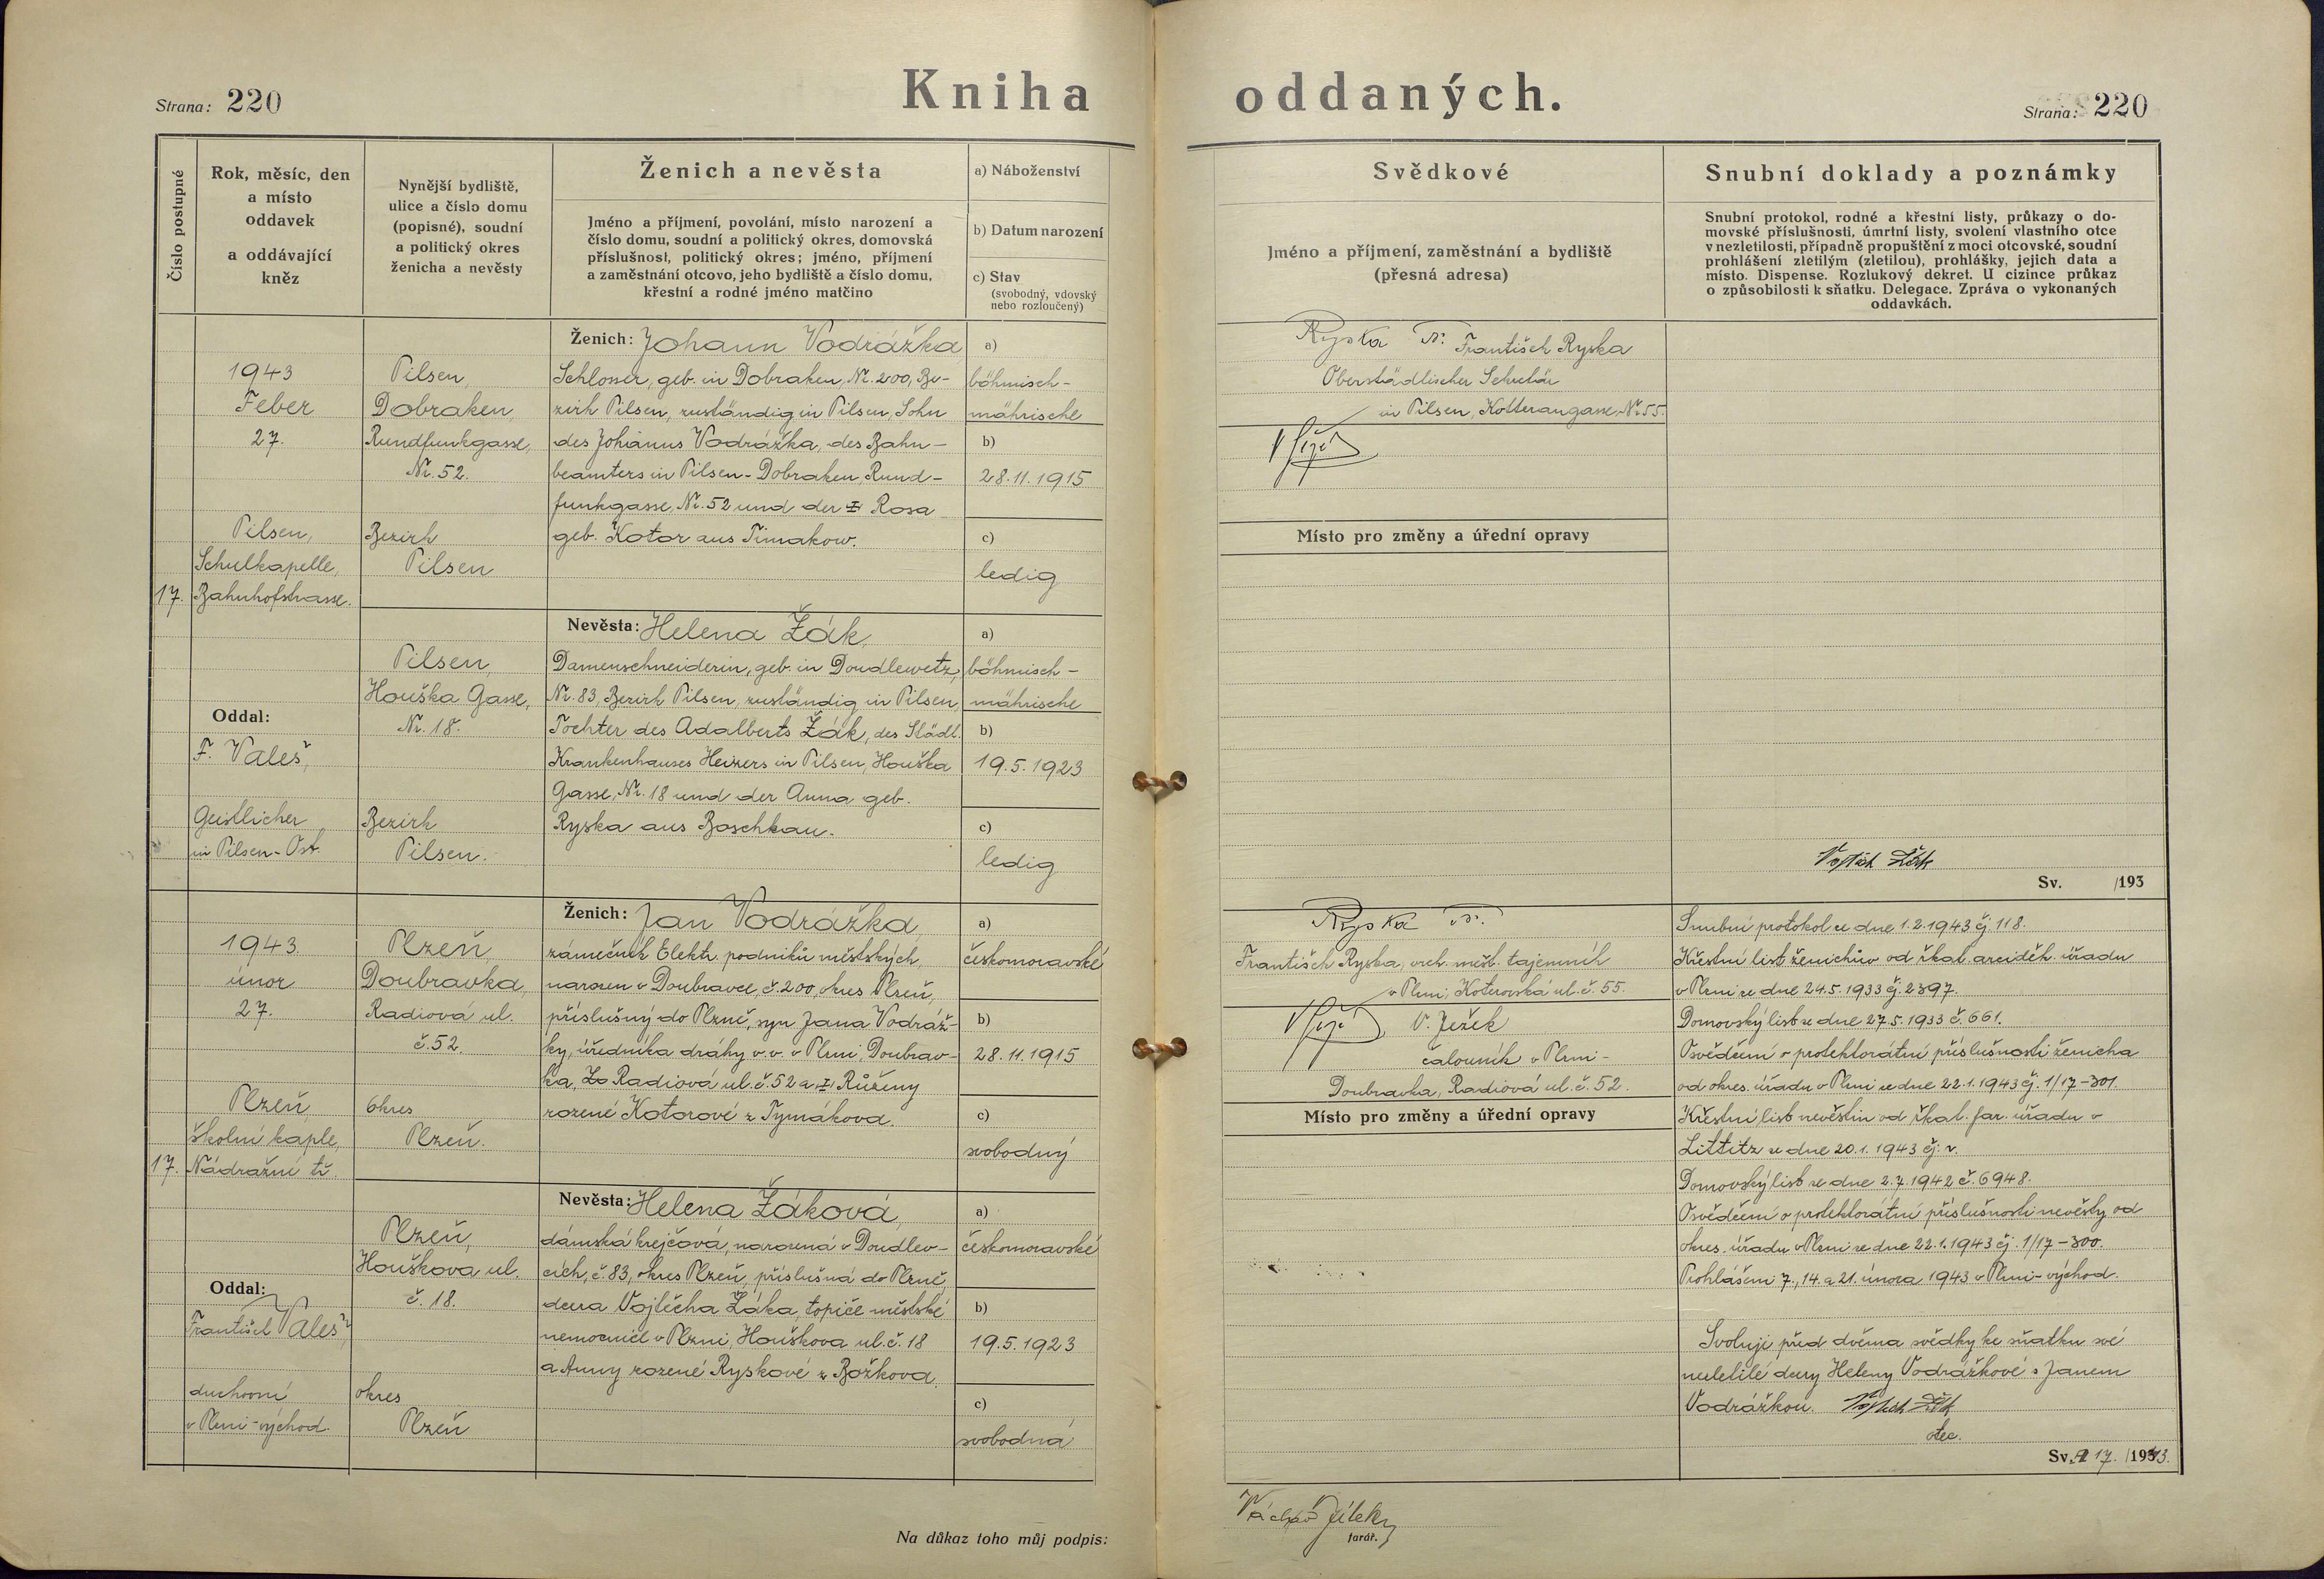 Strana: 220
Kniha oddaných.
Strana: 220
Číslo postupné
Rok, měsíc, den
a místo
oddavek
a oddávající
kněz
Nynější bydliště,
ulice a číslo domu
(popisné), soudní
a politický okres
ženicha a nevěsty
Ženich a nevěsta
Jméno a příjmení, povolání, místo narození a
číslo domu, soudní a politický okres, domovská
příslušnost, politický okres; jméno, příjmení
a zaměstnání otcovo, jeho bydliště a číslo domu,
křestní a rodné jméno matčino
a) Náboženství
b) Datum narození
c) Stav
(svobodný, vdovský
nebo rozloučený)
Svědkové
Jméno a příjmení, zaměstnání a bydliště
(přesná adresa)
Snubní doklady a poznámky
Snubní protokol, rodné a křestní listy, průkazy o do-
movské příslušnosti, úmrtní listy, svolení vlastního otce
v nezletilosti, případně propuštění z moci otcovské, soudní
prohlášení zletilým (zletilou), prohlášky, jejich data a
místo. Dispense. Rozlukový dekret. U cizince průkaz
o způsobilosti k sňatku. Delegace. Zpráva o vykonaných
oddavkách.
17.
1943
Feber
27.
Pilsen,
Schulkapelle,
Bahnhofstrasse.
Oddal:
F. Valeš,
Geistlicher
in Pilsen-Ost.
Pilsen,
Dobraken,
Rundfunkgasse,
Nr. 52.
Bezirk
Pilsen
Ženich: Johann Vodrážka
Schlosser, geb. in Dobraken, Nr. 200, Be-
zirk Pilsen, zuständig in Pilsen, Sohn
des Johanns Vodrážka, des Bahn-
beamters in Pilsen-Dobraken, Rund-
funkgasse, Nr. 52 und der Rosa
geb. Kotor aus Timakow.
a)
böhmisch-
mährische
b)
28.11.1915
c)
ledig
Pilsen,
Houška Gasse,
Nr. 18.
Bezirk
Pilsen.
Nevěsta: Helena Žák,
Damenschneiderin, geb. in Doudlewetz,
Nr. 83, Bezirk Pilsen, zuständig in Pilsen,
Tochter des Adalberts Žák, des Städt.
Krankenhauses Heizers in Pilsen, Houška
Gasse, Nr. 18 und der Anna geb.
Ryska aus Boschkau.
a)
böhmisch-
mährische
b)
19.5.1923
c)
ledig
Ryska Fr. František Ryska
Oberstädtischer Sekretär
in Pilsen, Kotterangasse, Nr. 55.
Místo pro změny a úřední opravy
Vojtěch Žák
Sv. /193
17.
1943.
únor
27.
Plzeň
školní kaple,
Nádražní tř.
Oddal:
František Valeš,
duchovní
v Plzni-východ.
Plzeň,
Doubravka,
Radiová ul.
č. 52.
okres
Plzeň.
Ženich: Jan Vodrážka,
zámečník Elektr. podniků městských,
narozen v Doubravce, č. 200, okres Plzeň,
příslušný do Plzně, syn Jana Vodráž-
ky, úředníka dráhy v.v. v Plzni, Doubrav-
ka, Radiová ul. č. 52 a Růženy
rozené Kotorové z Tymákova.
a)
českomoravské
b)
28.11.1915
c)
svobodný
Plzeň,
Houškova ul.
č. 18.
okres
Plzeň
Nevěsta: Helena Žáková,
dámská krejčová, narozená v Doudlev-
cích, č. 83, okres Plzeň, příslušná do Plzně,
dcera Vojtěcha Žáka, topiče městské
nemocnice v Plzni, Houškova ul. č. 18
a Anny rozené Ryskové z Božkova.
a)
českomoravské
b)
19.5.1923
c)
svobodná
Ryska Fr.
František Ryska, vrch. měst. tajemník
v Plzni, Koterovská ul. č. 55.
V. Ježek
čalouník v Plzni-
Doubravka, Radiová ul. č. 52.
Místo pro změny a úřední opravy
Snubní protokol ze dne 1.2.1943 čj. 118.
Křestní list ženichův od řkat. arciděk. úřadu
v Plzni ze dne 24.5.1933 čj. 2397.
Domovský list ze dne 27.5.1933 č. 661.
Osvědčení o protektorátní příslušnosti ženicha
od okres. úřadu v Plzni ze dne 22.1.1943 čj. 1/17-301.
Křestní list nevěstin od řkat. far. úřadu v
Littitz ze dne 20.1.1943 čj. r.
Domovský list ze dne 2.7.1942 č. 6948.
Osvědčení o protektorátní příslušnosti nevěsty od
okres. úřadu v Plzni ze dne 22.1.1943 čj. 1/17-300.
Prohlášení 7., 14. a 21. února 1943 v Plzni-východ.
Svoluji před dvěma svědky ke sňatku své
nezletilé dcery Heleny Vodrážkové s Janem
Vodrážkou. Vojtěch Žák
otec.
Sv. 17. /1943.
Na důkaz toho můj podpis:
Jílek
farář.